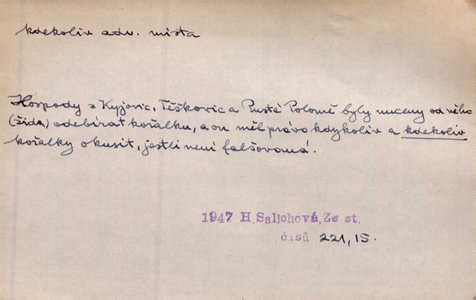 kdekoliv adv. místa
Hospody z Kyjovic, Těškovic a Pusté Polomě byly nuceny od něho
(žida) odebírat kořalku, a on měl právo kdykoliv a kdekoliv
kořalky okusit, jestli není falšovaná.
1947 H. Salichová, Ze st.
časů 221, 15.